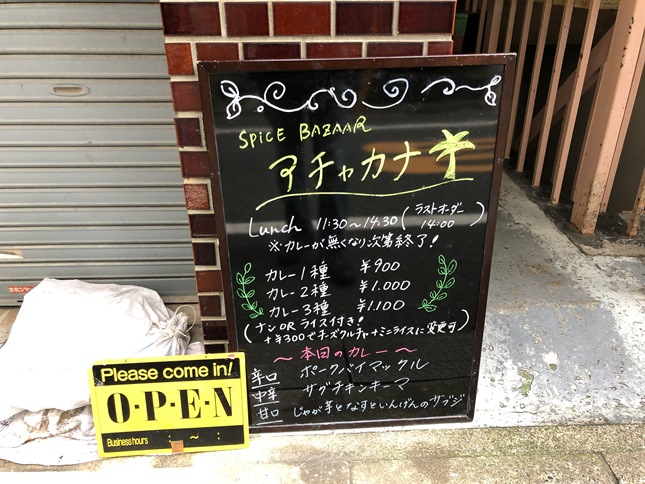 SPICE BAZAAR
アチャカナ
Lunch 11:30～14:30(ラストオーダー 14:00)
※カレーが無くなり次第終了!
カレー1種 ¥900
カレー2種 ¥1.000
カレー3種 ¥1.100
(ナンORライス付き!
+¥300でチーズクルチャ+ミニライスに変更可)
～本日のカレー～
辛口 ポークバイマックル
中辛 サグチキンキーマ
甘口 じゃが芋となすといんげんのサブジ
Please come in!
O·P·E·N
Business hours ～ :